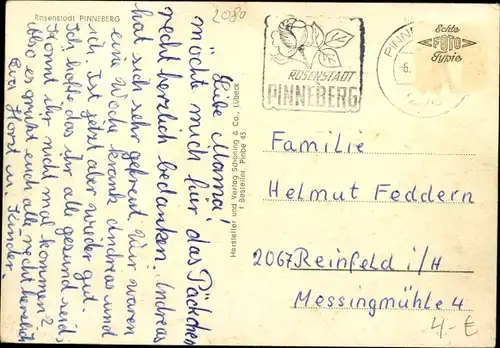 Rosenstadt PINNEBERG
2080
Liebe Mama!
möchte mich für das Päckchen
recht herzlich bedanken. Andreas
hat sich sehr gefreut. Wir waren
eine Woche krank Andreas und
ich. Ist jetzt aber wieder gut.
Ich hoffe das ihr alle gesund seid,
könnt ihr nicht mal kommen?
Also es grüßt euch alle recht herzlich
Eva Horst u. Kinder.
Hersteller und Verlag Schöning & Co., Lübeck
Bestellnr. Pinbe 45
ROSENSTADT
PINNEBERG
PINNE
Echte
FOTO
Typie
Familie
Helmut Feddern
2067 Reinfeld i/H
Messingmühle 4
4,-€